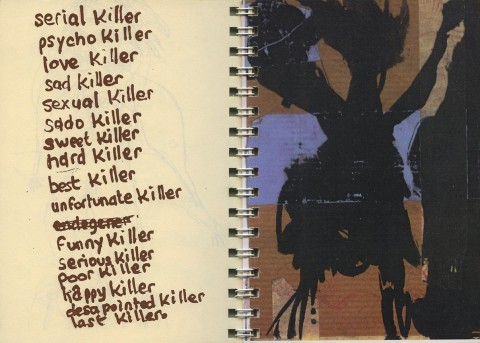 serial killer
psycho killer
love killer
sad killer
sexual killer
sado killer
sweet killer
hard killer
best killer
unfortunate killer
funny killer
serious killer
poor killer
happy killer
desapointed killer
last killer.